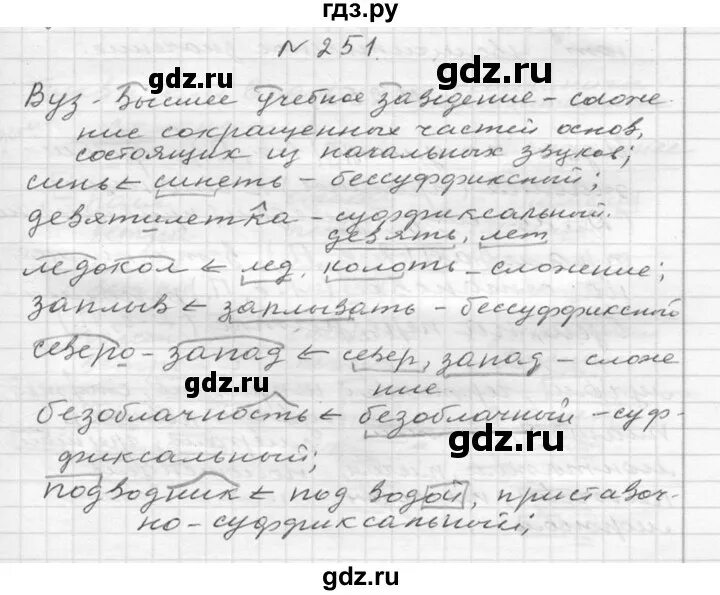 гдз.ру
N 251.
gdz.ru gdz.ru
Вуз - Высшее учебное заведение - сложе
ние сокращенных частей основ,
состоящих из начальных звуков;
синь < синеть - бессуффиксный;
девятилетка - суффиксальный.
девять, лет
gdz.ru gdz.ru
ледокол < лед, колоть - сложение;
заплыв < заплывать - бессуффиксный
северо-запад < север, запад - сложе
ние
gdz.ru
безоблачность < безоблачный - суф-
gdz.ru
фиксальный;
подводник < под водой, приставоч-
но-суффиксальный;
gdz.ru